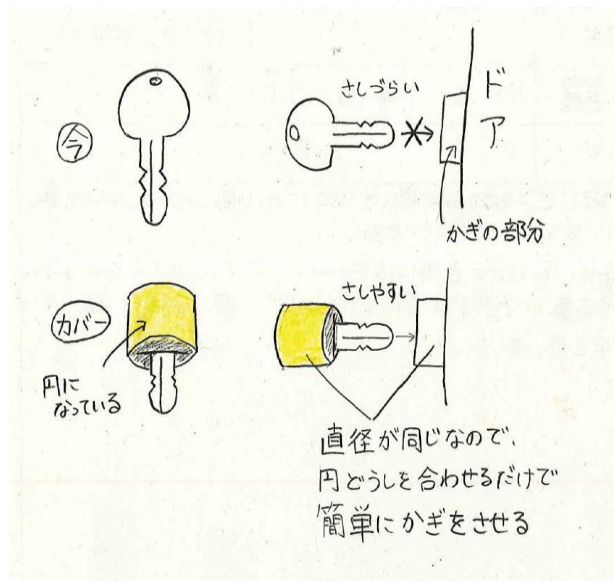 今
さしづらい
ドア
かぎの部分
カバー
円に
なっている
さしやすい
直径が同じなので、
円どうしを合わせるだけで
簡単にかぎをさせる